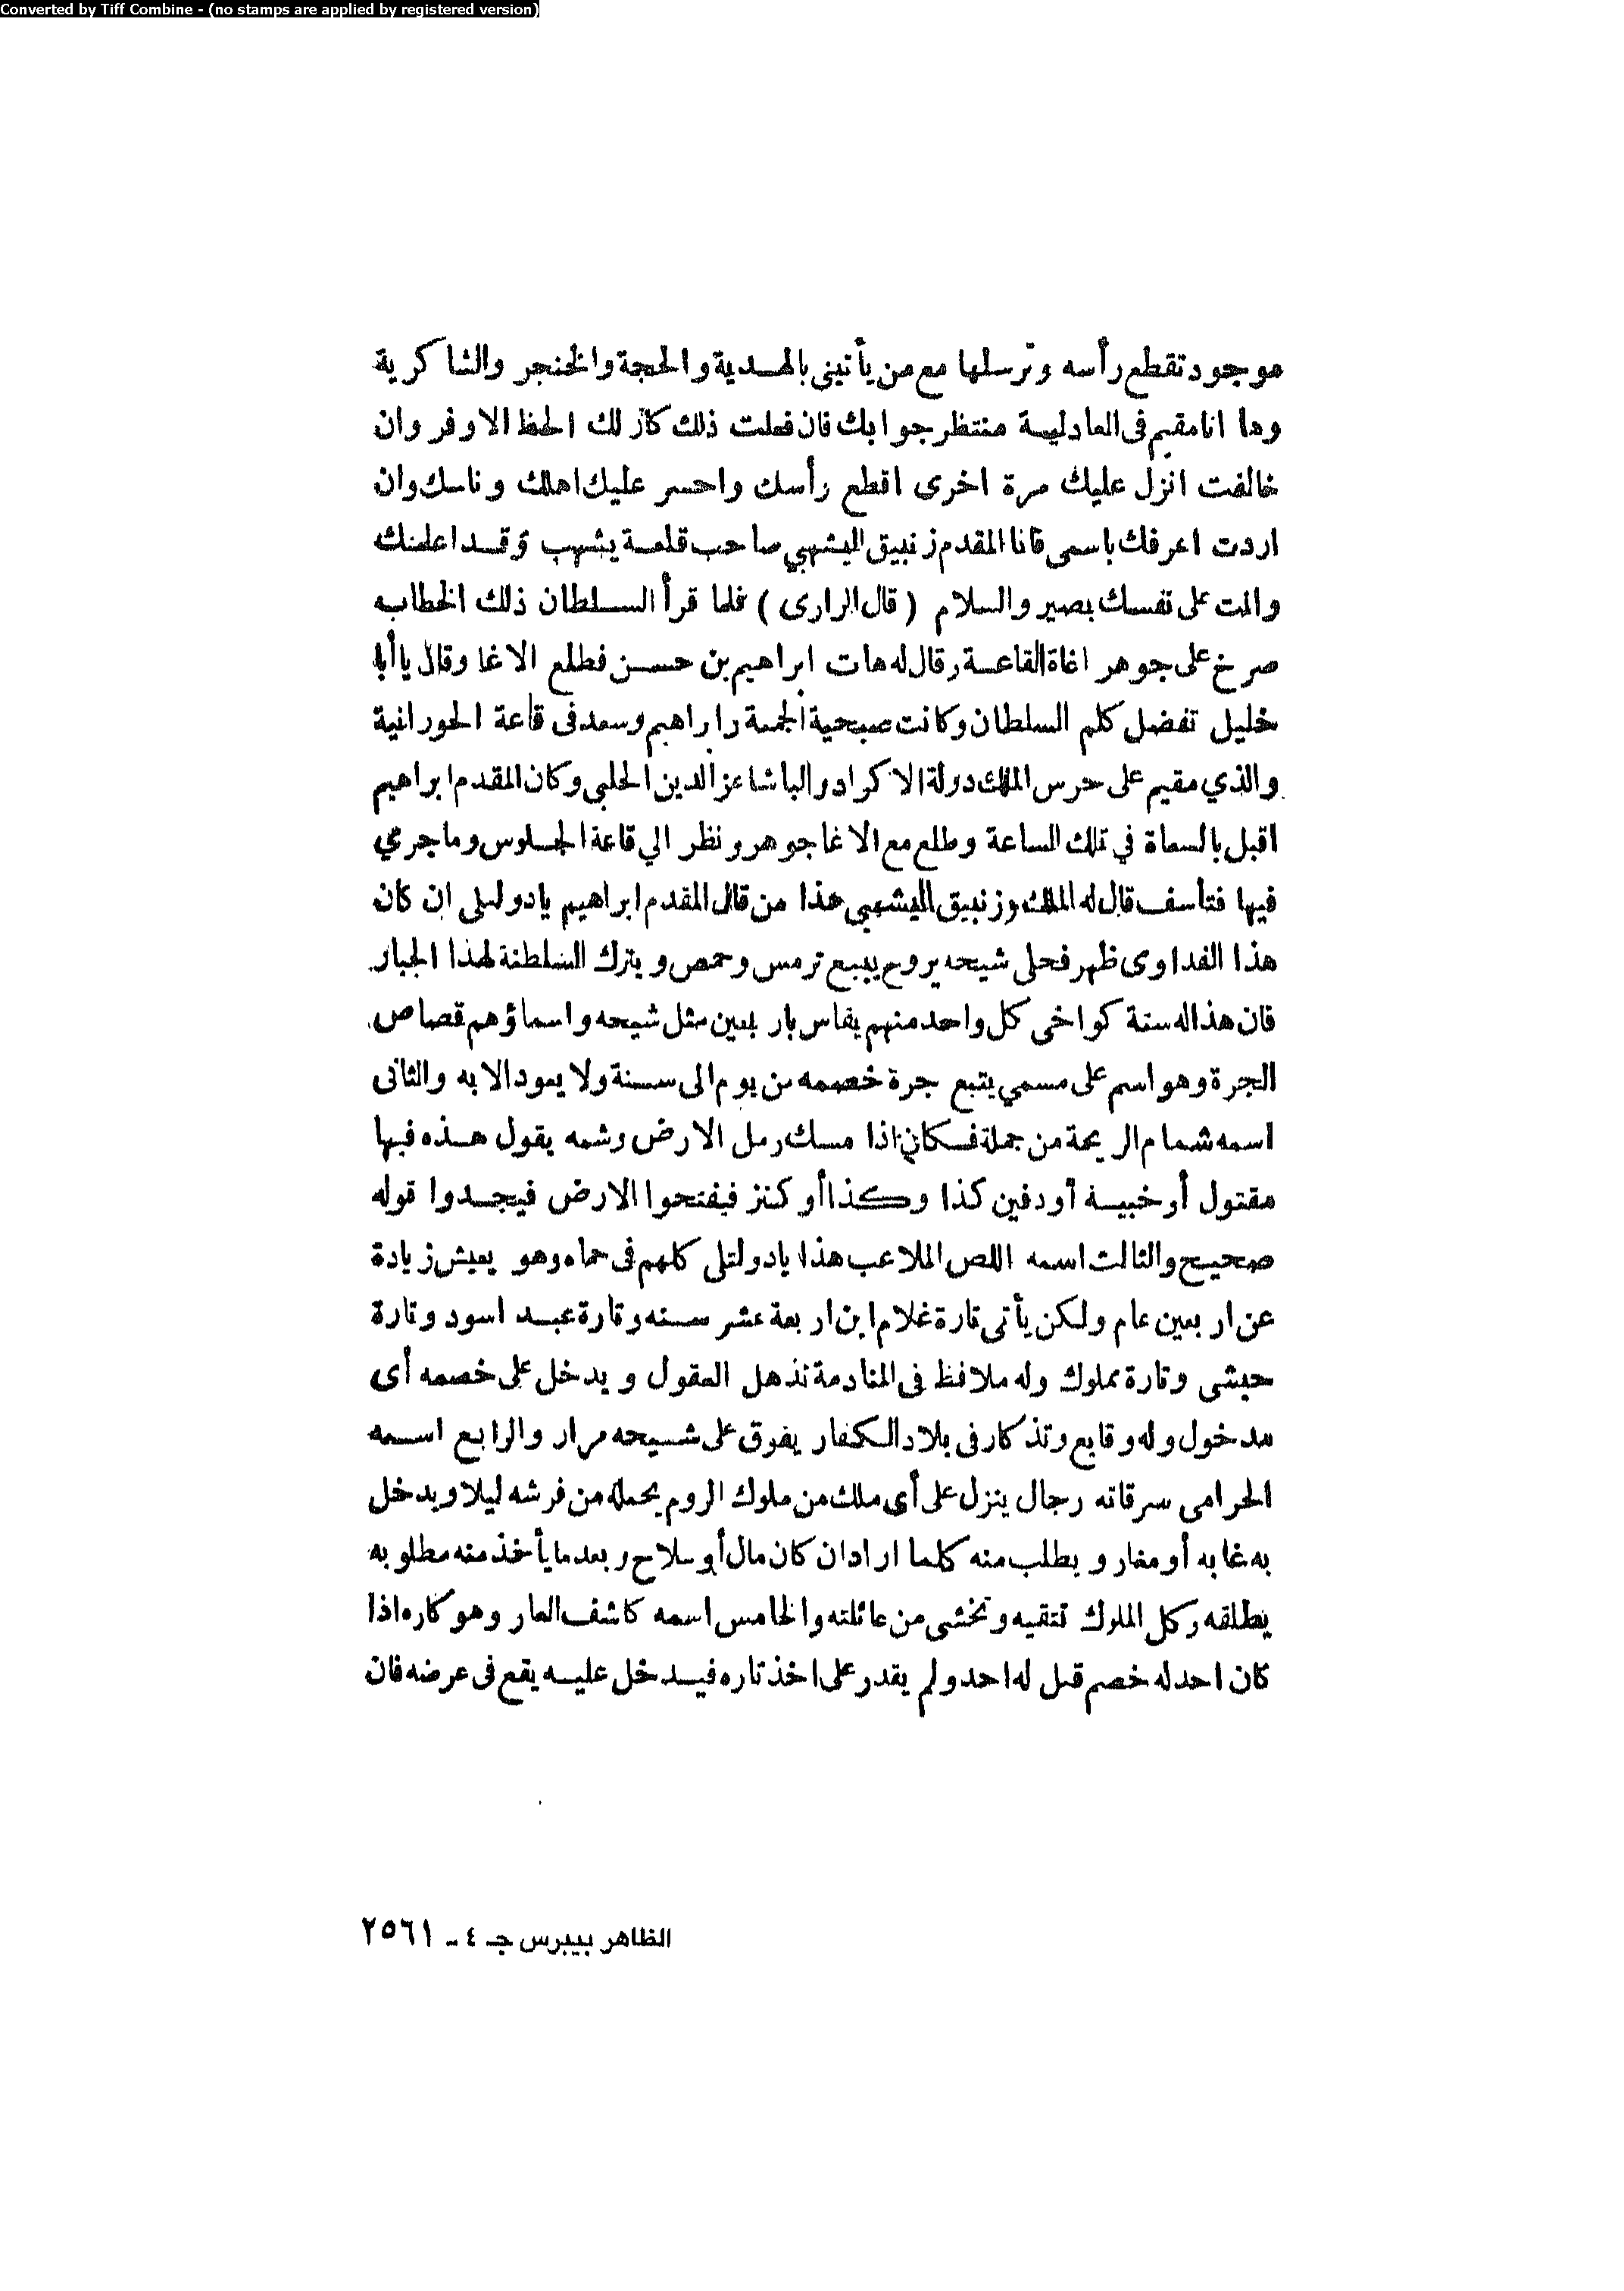 Converted by Tiff Combine - (no stamps are applied by registered version)
موجود تقطع رأسه وترسلها مع من يأتيني بالهدية والحجة والخنجر والشاكرية
وها انا مقيم فى العادلية منتظر جوابك فان فعلت ذلك كان لك الحظ الاوفر وان
خالفت انزل عليك مرة اخرى اقطع رأسك واحسر عليك اهلك وناسك وان
اردت اعرفك باسمى فانا المقدم زنبيق اليشهبي صاحب قلعة يشهب وقد اعلمتك
وانت على نفسك بصير والسلام ( قال الراوى ) فلما قرأ السلطان ذلك الخطاب
صرخ على جوهر اغاة القاعة وقال له هات ابراهيم بن حسن فطلع الاغا وقال يا أبا
خليل تفضل كلم السلطان وكانت صبحية الجمعة وابراهيم وسعد فى قاعة الحورانية
والذي مقيم على حرس الملك دولة الاكراد والباشا عز الدين الحلبى وكان المقدم ابراهيم
اقبل بالسعاة في تلك الساعة وطلع مع الاغا جوهر ونظر الي قاعة الجلوس وما جري
فيها فتأسف قال له الملك وزنبيق اليشهبي هذا من قال المقدم ابراهيم يادولتلى ان كان
هذا الفداوى ظهر فحلى شيحه يروح يبيع ترمس وحمص ويترك السلطنة لهذا الجبار
فان هذا له ستة كواخى كل واحد منهم يقاس باربعين مثل شيحه واسماؤهم قصاص
الجرة وهو اسم على مسمي يتبع جرة خصمه من يوم الى سنة ولا يعود الا به والثانى
اسمه شمام الريحة من جملة فكان اذا مسك رمل الارض وشمه يقول هذه فيها
مقتول أو خبية أو دفين كذا وكذا أو كنز فيفتحوا الارض فيجدوا قوله
صحيح والثالت اسمه اللص الملاعب هذا يادولتلى كلهم فى حماه وهو يعيش زيادة
عن اربعين عام ولكن يأتى تارة غلام ابن اربعة عشر سنه وتارة عبد اسود وتارة
حبشى وتارة مملوك وله ملافظ فى المنادمة تذهل العقول ويدخل على خصمه أى
مدخول وله وقايع وتذكار فى بلاد الكفار يفوق على شيحه مرار والرابع اسمه
الحرامى سرقاته رجال ينزل على أى ملك من ملوك الروم يحمله من فرشه ليلا ويدخل
به غابه أو مغار ويطلب منه كلما اراد ان كان مال أو سلاح وبعد ما يأخذ منه مطلوبه
يطلقه وكل الملوك تتقيه وتخشى من عائلته والخامس اسمه كاشف العار وهو كاره اذا
كان احد له خصم قتل له احد ولم يقدر على اخذ تاره فيدخل عليه يقع فى عرضه فان
الظاهر بيبرس جـ ٤ ـ ٢٥٦١